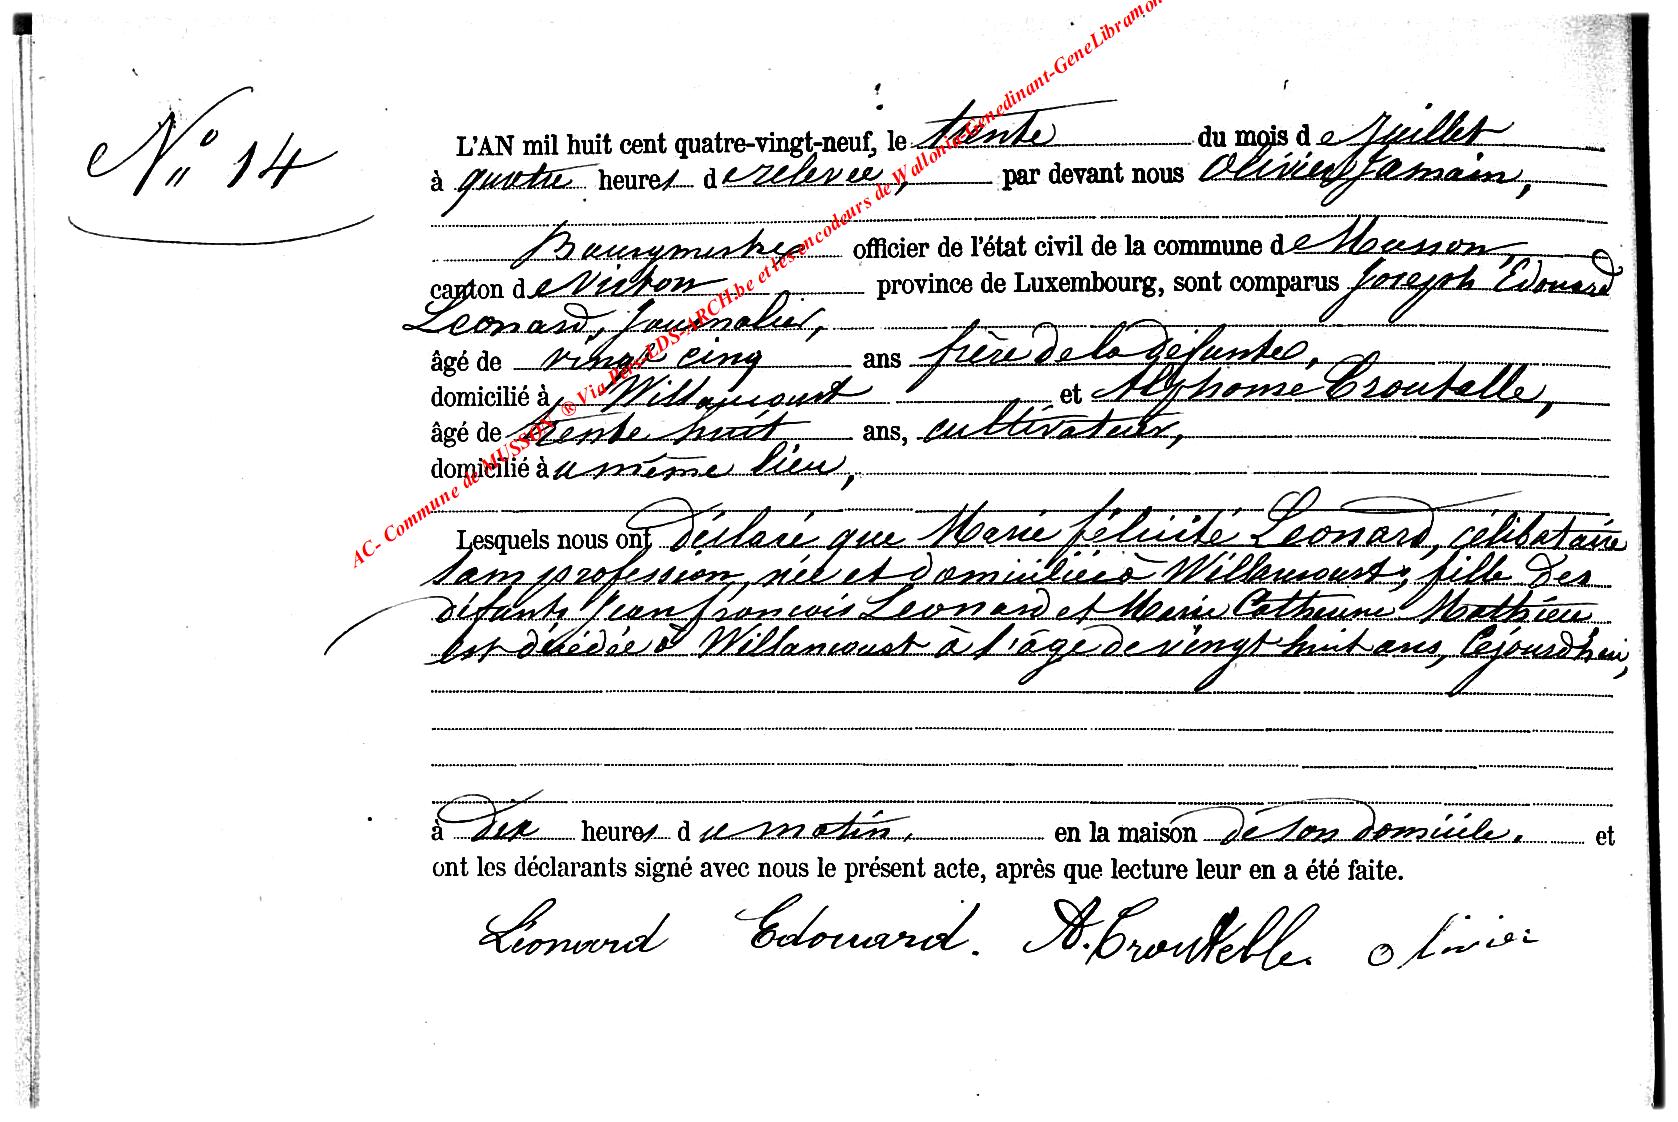 N° 14
L'AN mil huit cent quatre-vingt-neuf, le trente du mois de Juillet
à quatre heures de relevée, par devant nous Olivier Jamain,
Bourgmestre officier de l'état civil de la commune de Musson,
canton de Virton province de Luxembourg, sont comparus Joseph Edouard
Leonard, Journalier,
âgé de vingt cinq ans frère de la défunte,
domicilié à Willancourt et Alphonse Croutelle,
âgé de trente huit ans, cultivateur,
domicilié au même lieu,
Lesquels nous ont déclaré que Marie félicité Leonard, célibataire
sans profession, née et domiciliée à Willancourt, fille des
défunts Jean françois Leonard et Marie Catherine Mathieu
est décédée à Willancourt à l'âge de vingt huit ans, Cejourd'hui,
à dix heures du matin, en la maison de son domicile. et
ont les déclarants signé avec nous le présent acte, après que lecture leur en a été faite.
Léonard Edouard. A. Croutelle. Olivier
AC- Commune de MUSSON ® Via Perv.LDS-ARCH.be et les encodeurs de Wallonia-Genedinant-GeneLibramon